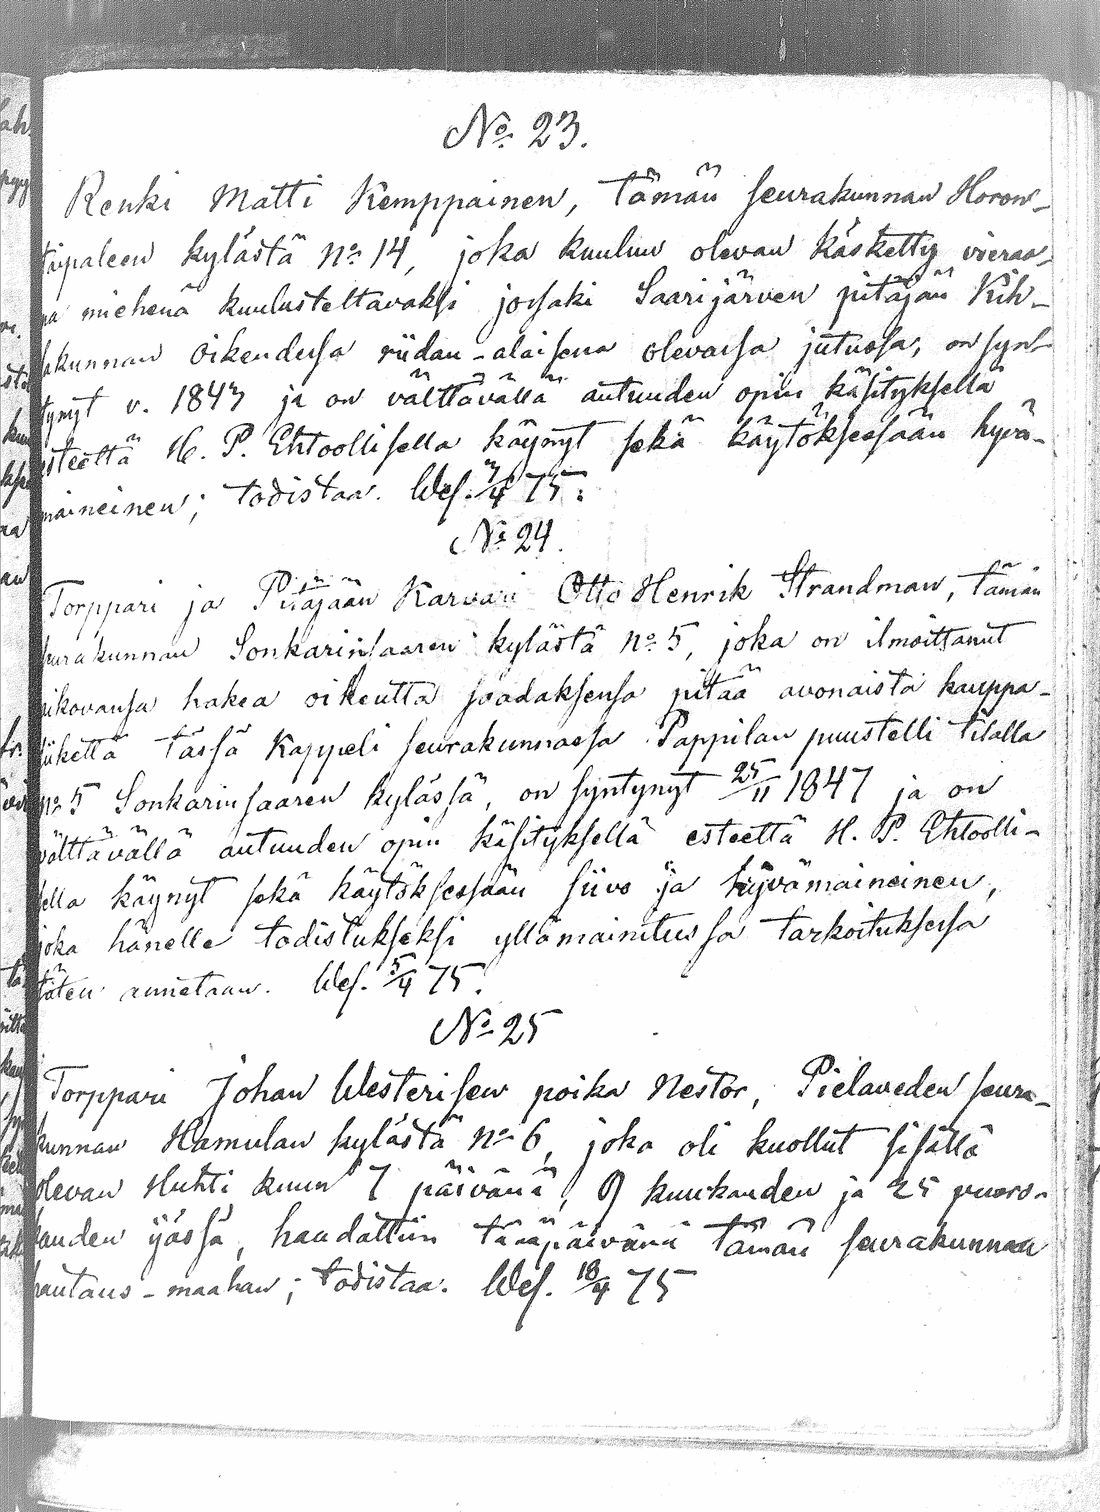 No. 23.
Renki Matti Kemppainen, tämän seurakunnan Horon-
taipaleen kylästä No 14, joka kuuluu olevan käsketty vieraa-
na miehenä kuulusteltavaksi jossaki Saarijärven pitäjän Kih-
lakunnan oikeudessa riidan-alaisena olevassa jutussa, on synt-
tynyt v. 1847 ja on välttävällä autuuden opin käsityksellä
esteettä H. P. Ehtoollisella käynyt sekä käytöksessään hyvä-
maineinen; todistaa. Wes. 7/4 75.
No 24.
Torppari ja Pitäjään Karvari Otto Henrik Strandman, tämän
seurakunnan Sonkarinsaaren kylästä No 5, joka on ilmoittanut
aikovansa hakea oikeutta saadaksensa pitää avonaista kauppa-
liikettä tässä Kappeli seurakunnassa Pappilan puustelli tilalla
No 5 Sonkarinsaaren kylässä, on syntynyt 25/11 1847 ja on
välttävällä autuuden opin käsityksellä esteettä H. P. Ehtoolli-
sella käynyt sekä käytöksessään siivo ja hyvämaineinen,
joka hänelle todistukseksi yllämainitussa tarkoituksessa
täten annetaan. Wes. 5/4 75.
No 25
Torppari Johan Westerisen poika Nestor, Pielaveden seura-
kunnan Hamulan kylästä No 6, joka oli kuollut sisällä
olevan Huhti kuun 7 päivänä, 9 kuukauden ja 25 vuoro-
kauden ijässä, haudattiin tänäpäivänä tämän seurakunnan
hautaus-maahan; todistaa. Wes. 18/4 75